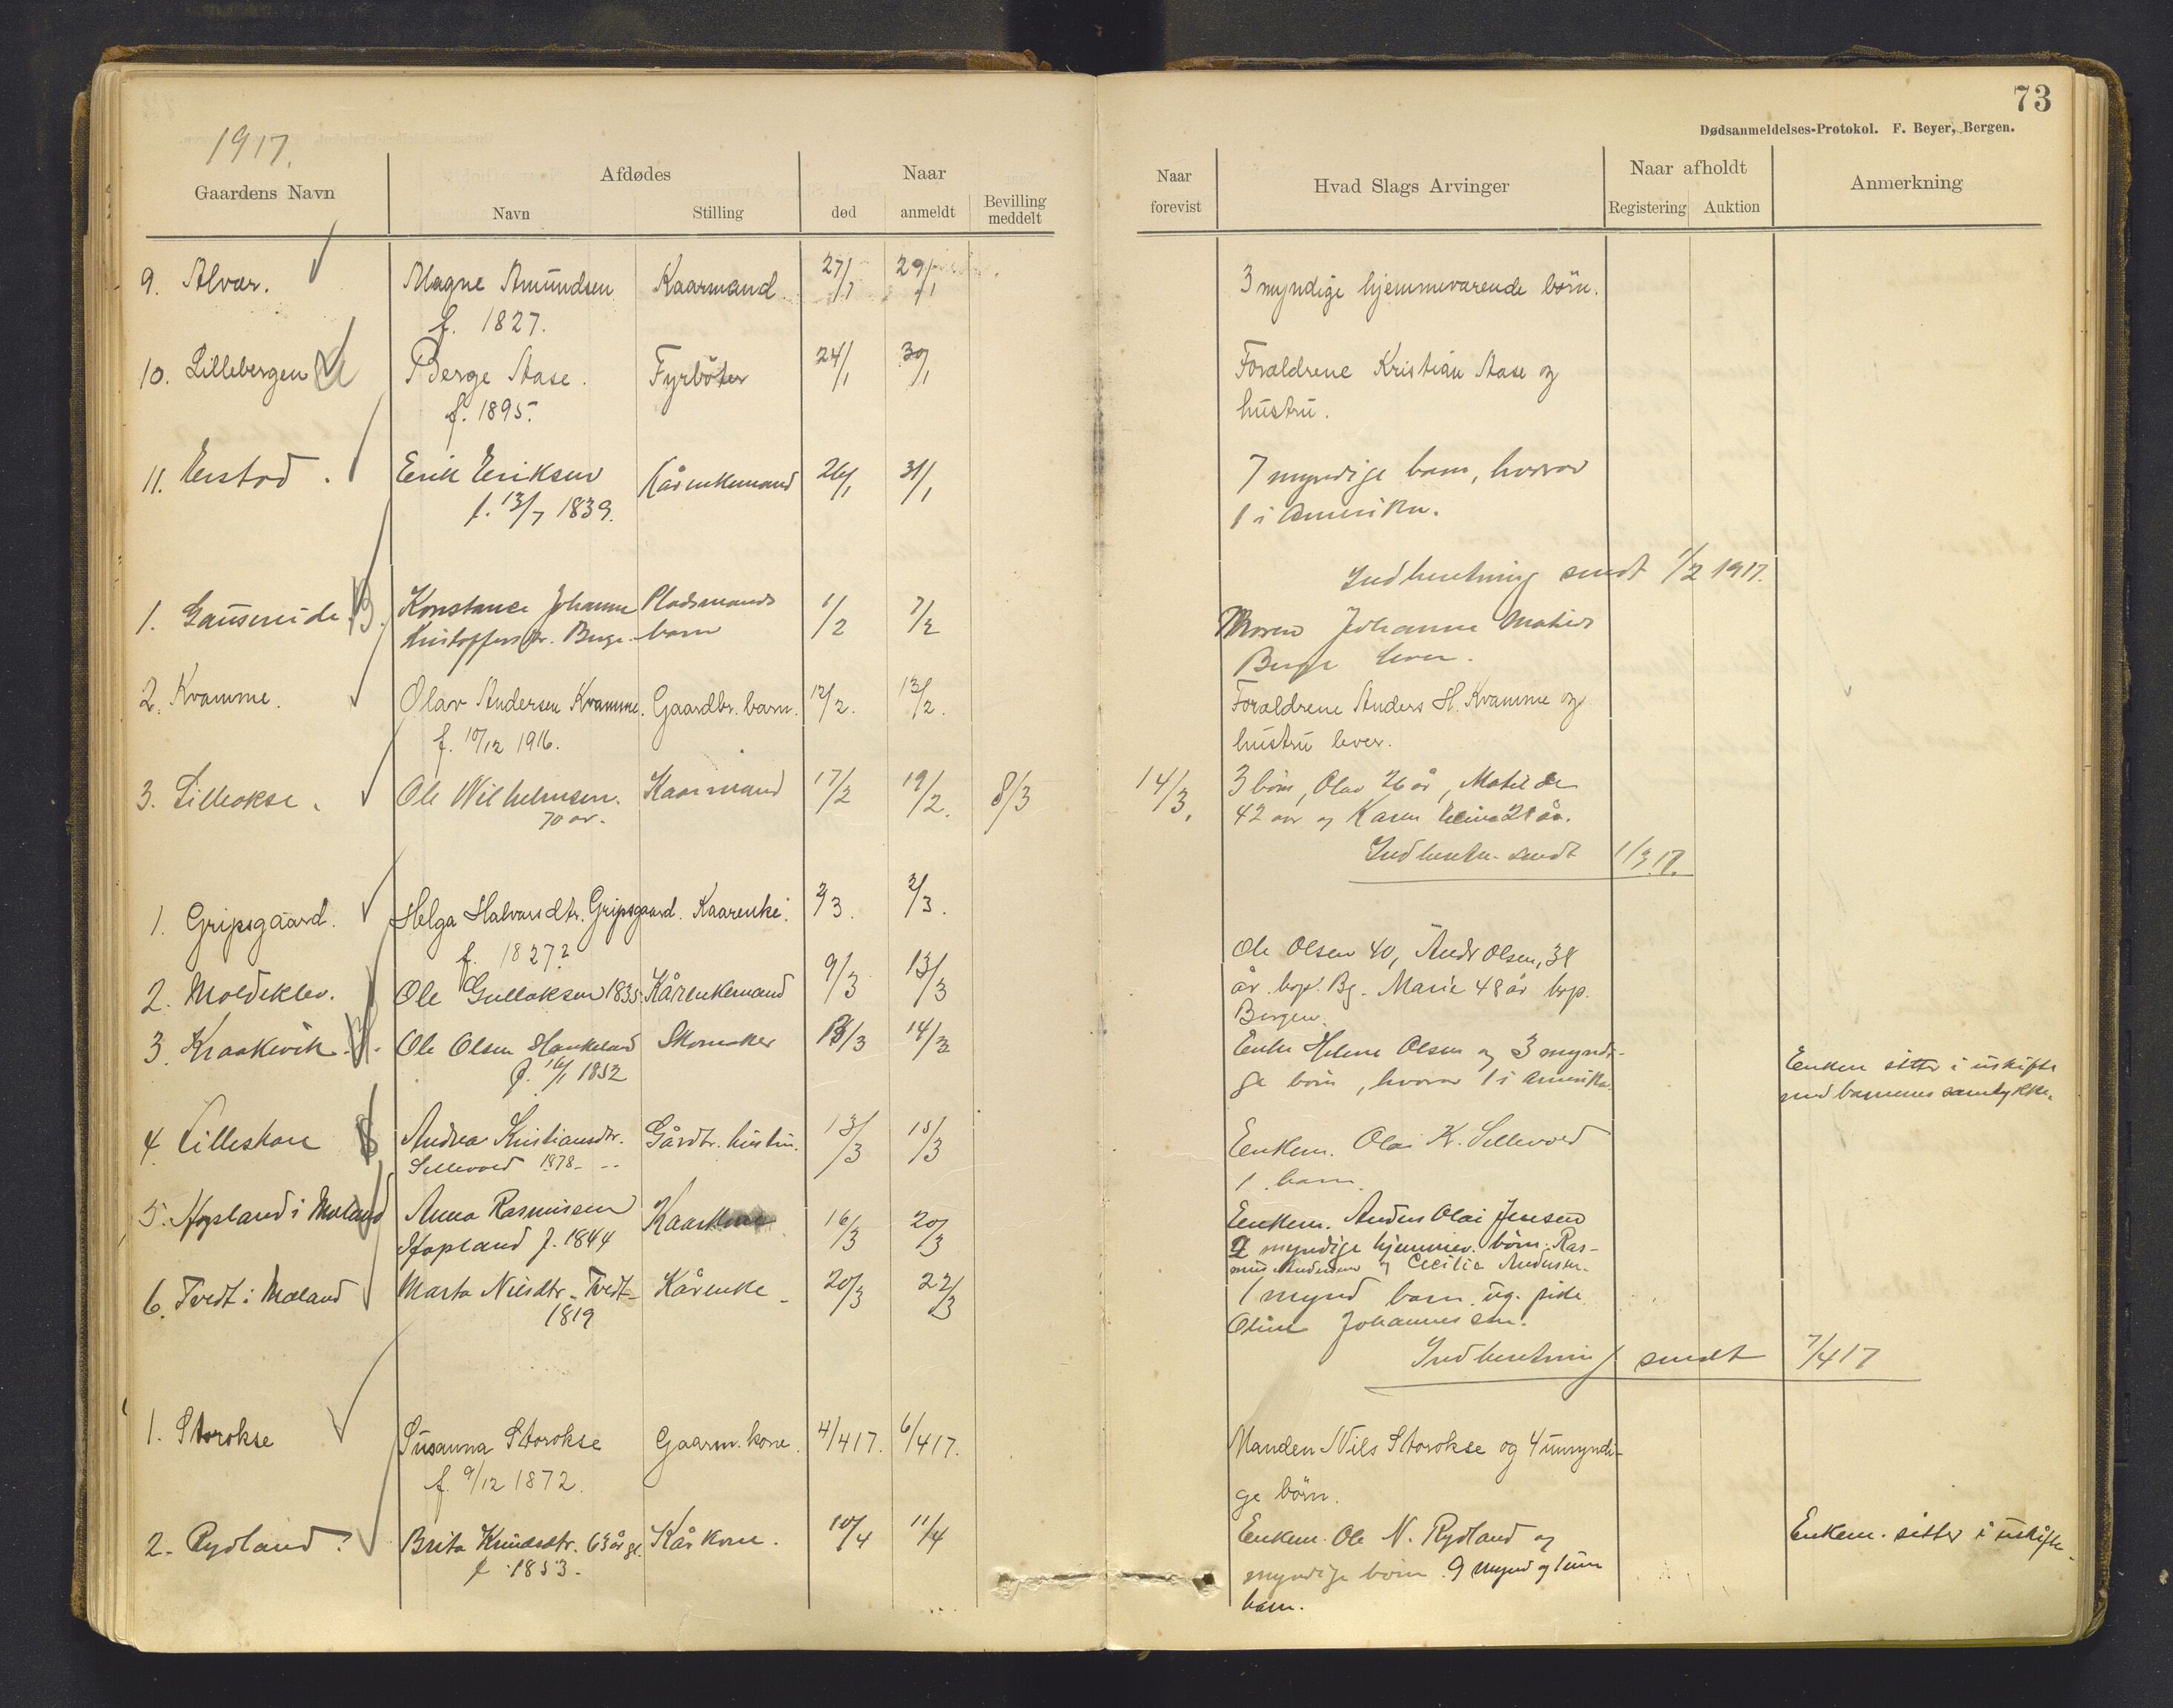 73
Dødsanmeldelses-Protokol. F. Beyer, Bergen.
1917.
Gaardens Navn
Afdødes
Navn
Stilling
Naar
død
anmeldt
Bevilling meddelt
Naar forevist
Hvad Slags Arvinger
Naar afholdt
Registering
Auktion
Anmerkning
9. Alvær. Magne Amundsen Kaarmand 27/1 29/1 3 myndige hjemmeværende börn.
f. 1827.
10. Lillebergen Berge Aase. Fyrböter 24/1 30/1 Forældrene Kristian Aase og
f. 1895. hustru.
11. Erstad. Erik Eriksen Kårenkemand 26/1 31/1 7 myndige barn, hvorav
f. 13/7 1839. 1 i Amerika.
Indberetning sendt 1/2 1917.
1. Konstance Johanne Pladsmands 1/2 7/2 Moren Johanne
Kristoffersdtr. Berge barn Berge lever.
2. Kvamme. Olav Andersen Kvamme. Gaardbr. barn. 12/2. 13/2. Forældrene Anders H. Kvamme og
f. 10/12 1916. hustru lever.
3. Lilleokse. Ole Wilhelmsen. Kaarmand 17/2 19/2. 8/3 14/3. 3 börn, Olav 26 år, Matilde
70 år. 42 aar og Karen 28 år.
Indberetn. sendt 1/3 17.
1. Gripsgaard. Helga Halvarsdtr. Gripsgaard. Kaarenke. 2/3. 2/3.
f. 1827?
2. Moldeklev. Ole Gulloksen 1835 Kårenkemand 9/3 13/3 Ole Olsen 40, Andr Olsen, 38
år bop. Bg. Marie 48 år bop.
Bergen.
3. Kraakevik. Ole Olsen Haukeland Skomaker 13/3 14/3 Enke Helene Olsen og 3 myndi-
f. 16/1 1852 ge börn, hvorav 1 i Amerika. Enken sitter i uskifte
med barnenes samtykke.
4. Lilleskare Andrea Kristiansdtr. Gårdbr. hustru. 13/3 15/3 Enkem. Olai K. Sellevold
Sellevold 1878 1 barn.
5. Hopland i Mæland Anna Rasmussen Kaarkone 16/3 20/3 Enkem. Anders Olai Jensen
Hopland f. 1844 2 myndige hjemmev. börn: Ras-
mus Andersen og Cecilie Andersen.
6. Tvedt i Mæland Marta Nilsdtr. Tvedt Kårenke 20/3 22/3 1 mynd barn ug. pike
1819 Oline Johannessen.
Indberetning sendt 7/4 17
1. Storokse Susanna Storokse Gaarm. kone. 4/417. 6/417. Manden Nils Storokse og 4 umyndi-
f. 9/12 1872. ge börn.
2. Rydland? Brita Knudsdtr. 63 år gl. Kårkone. 10/4 11/4 Enkem. Ole N. Rydland og Enkem. sitter i uskifte.
f. 1853. myndige börn. 9 mynd og 1 um
barn.